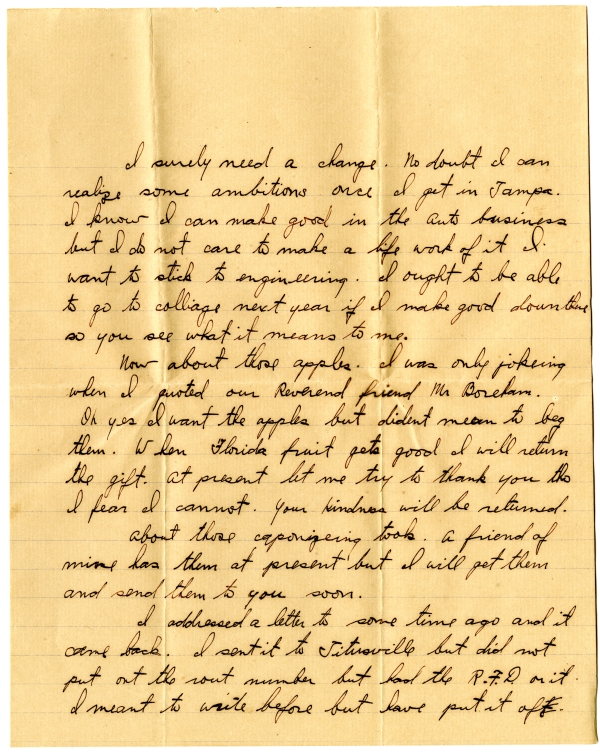 I surely need a change. No doubt I can
realize some ambitions once I get in Tampa.
I know I can make good in the auto business
but I do not care to make a life work of it I
want to stick to engineering. I ought to be able
to go to collage next year if I make good down there
so you see what it means to me.
Now about those apples. I was only jokeing
when I quoted our Reverend friend Mr Boreham.
Oh yes I want the apples but dident mean to beg
them. When Florida fruit gets good I will return
the gift. At present let me try to thank you tho
I fear I cannot. Your kindness will be returned.
About those caponizeing tools. A friend of
mine has them at present but I will get them
and send them to you soon.
I addressed a letter to some time ago and it
came back. I sent it to Titusville but did not
put on the rout number but had the R.F.D on it.
I meant to write before but have put it off.